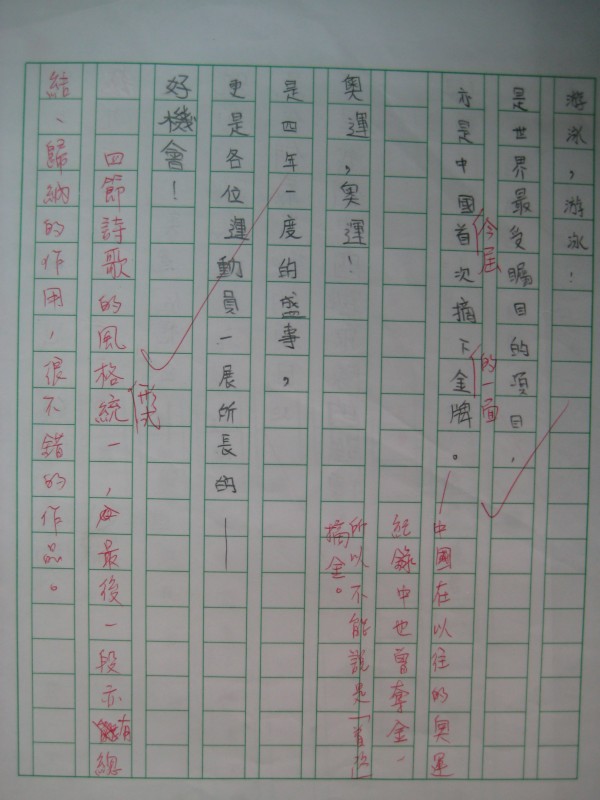 游泳，游泳！
是世界最受矚目的項目，
亦是中國首次摘下金牌。
今屆
的一面
中國在以往的奧運
紀錄中也曾奪金，
所以不能說是「首次」
摘金。
奧運，奧運！
是四年一度的盛事，
更是各位運動員一展所長的——
好機會！
四節詩歌的風格統一，最後一段亦有總
形式
結、歸納的作用，很不錯的作品。